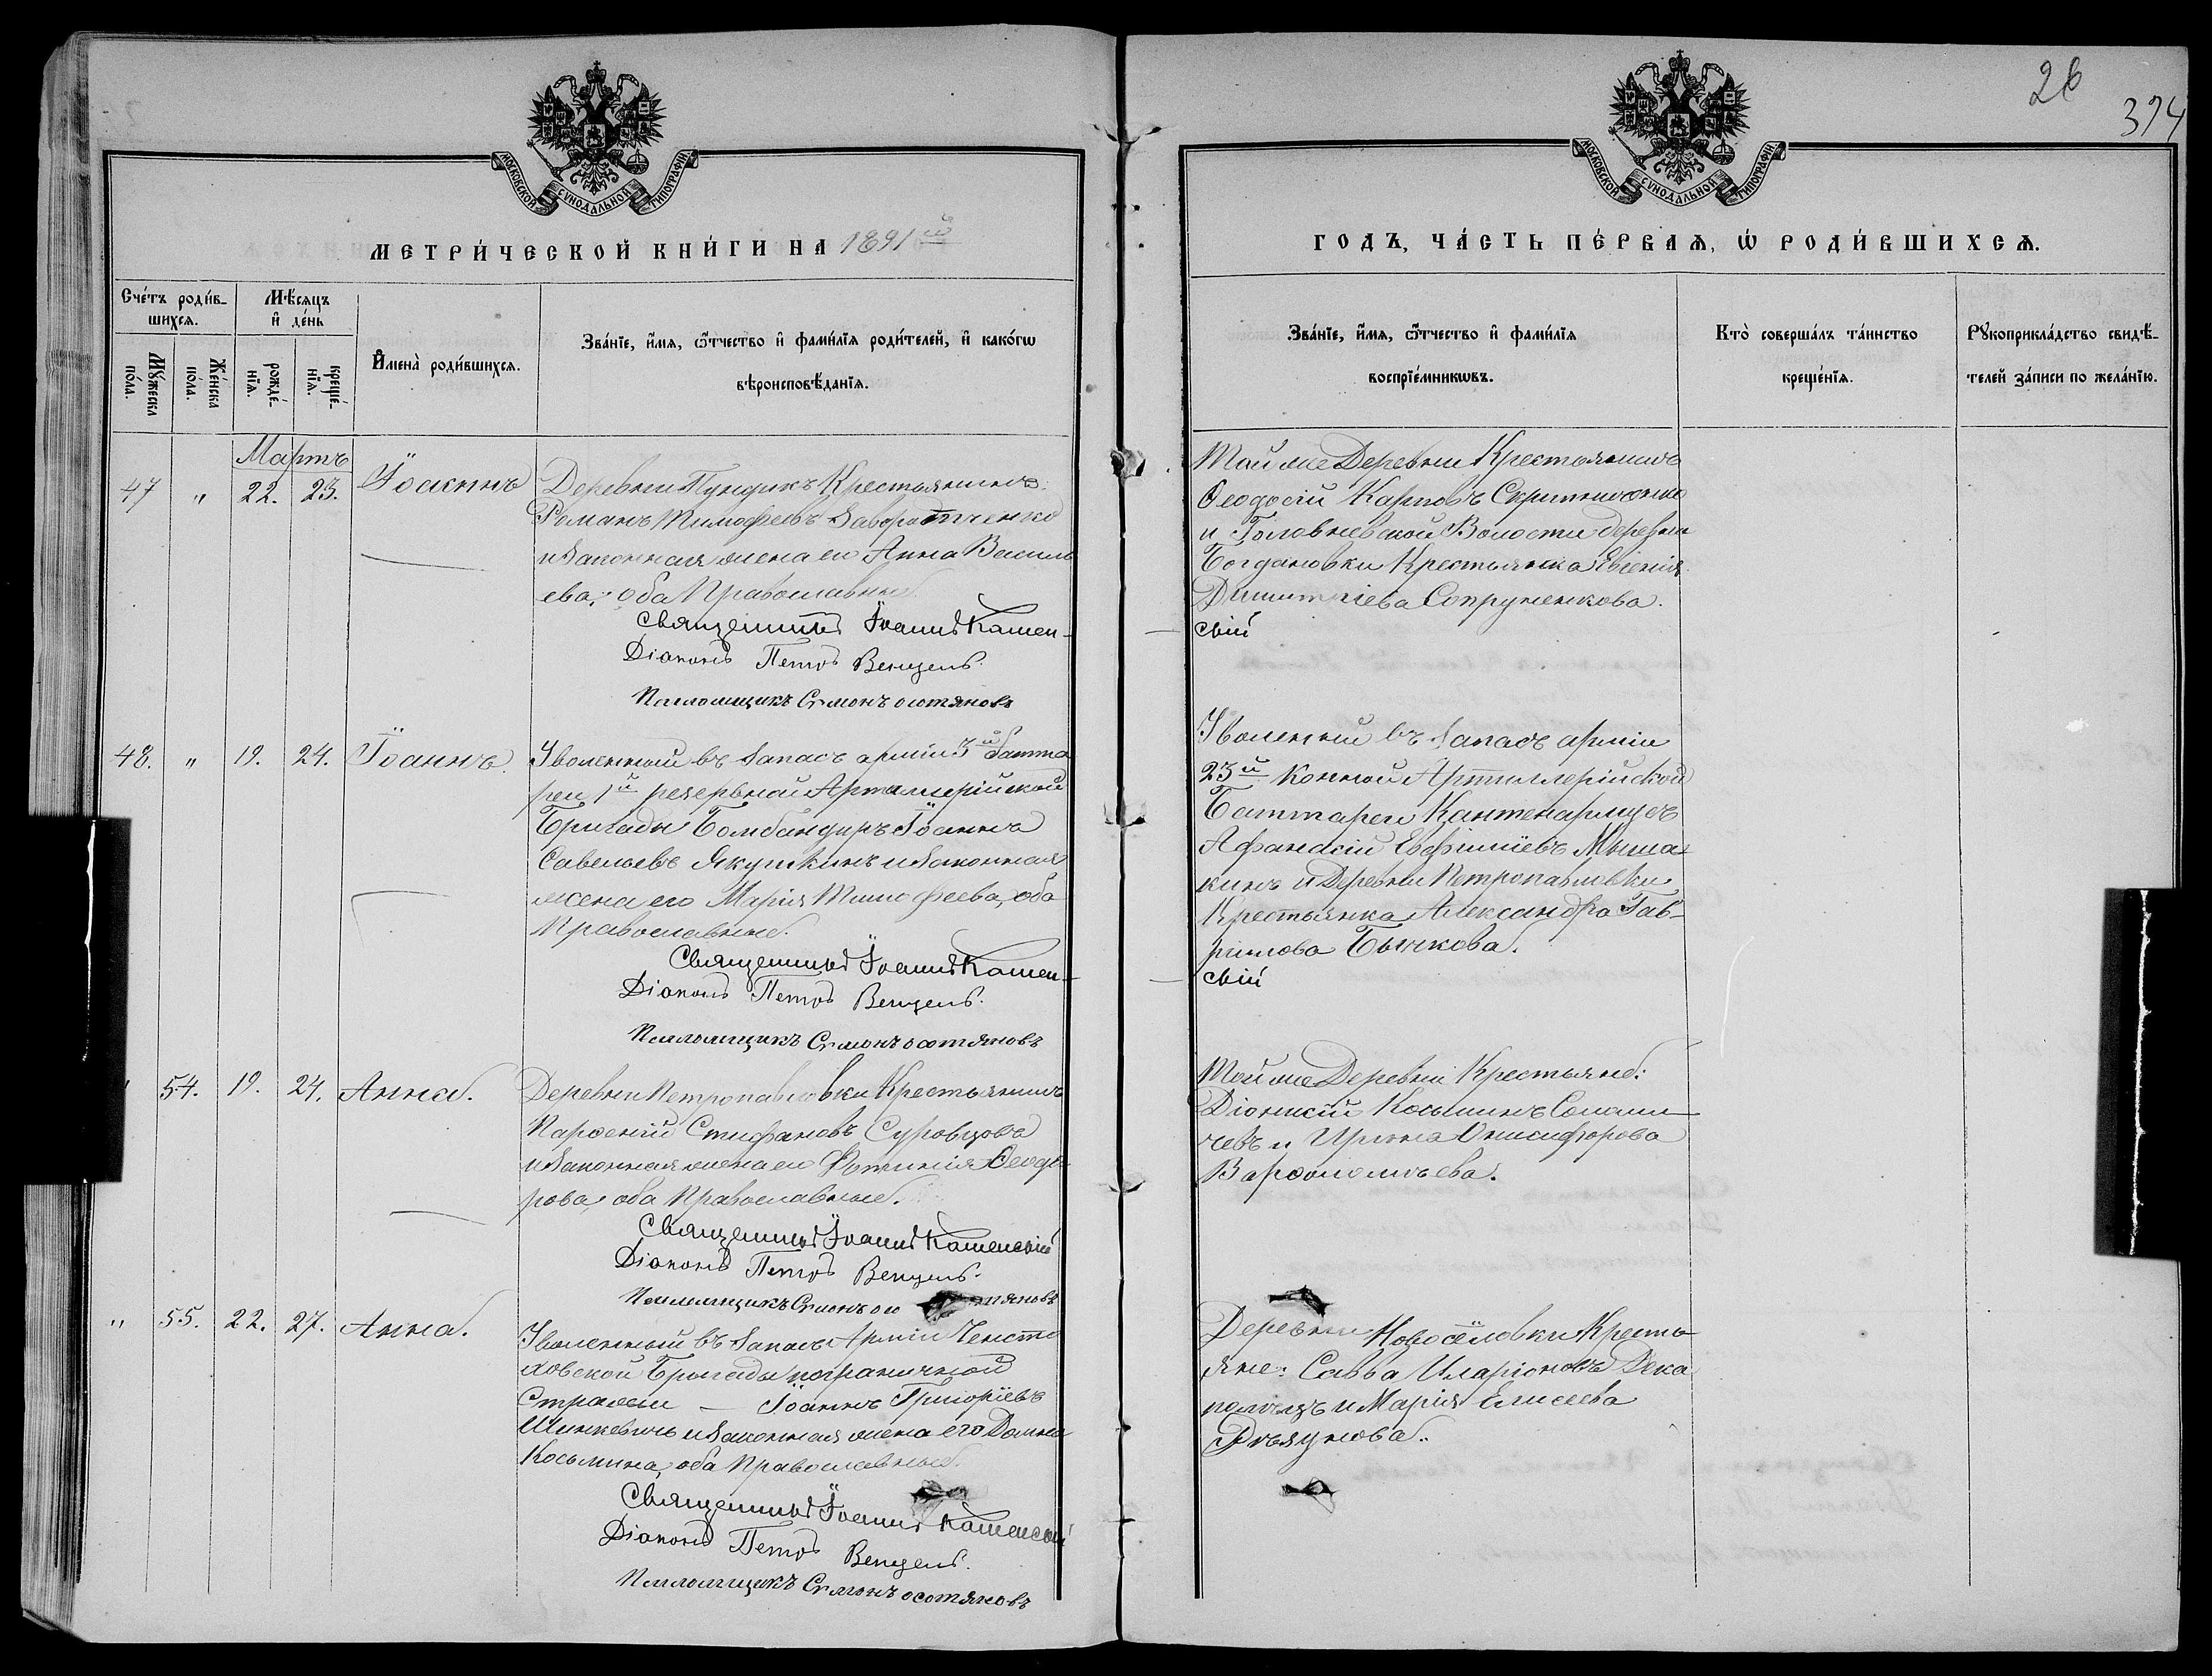 26
374
МОСКОВСКОЙ СѴНОДАЛЬНОЙ ТИПОГРАФІИ
МЕТРИ́ЧЕСКОЙ КНИ́ГИ НА 1891й
Сче́тъ роди́в-
шихсѧ.
Мѣ́сѧцъ
и҆ де́нь
Мꙋ́жеска
по́ла.
Же́нска
по́ла.
рожде́-
нїѧ.
креще́-
нїѧ.
И҆мена̀ роди́вшихсѧ.
Зва́нїе, и҆́мѧ, ѻ҆́тчество и҆ фами́лїѧ роди́телей, и҆ како́гѡ
вѣроисповѣ́данїѧ.
Мартъ
47 " 22. 23. Іоаннъ
Деревни Пундикъ Крестьянинъ:
Романъ Тимофеевъ Заворотченко
и законная жена его Анна Василь
ева, оба Православные
Священникъ Іоаннъ Камен-
Діаконъ Петръ Венцель.
Псаломщикъ Симонъ Осотяновъ
48. " 19. 24. Іоаннъ.
Уволенный въ запасъ арміи 3й Батта
реи 1й резервной Артиллерійской
Бригады Бомбандиръ Іоаннъ
Савельевъ Якушкинъ и законная
жена его Марія Тимофеева, оба
Православные.
Священникъ Іоаннъ Камен-
Діаконъ Петръ Венцель.
Псаломщикъ Симонъ Осотяновъ
54. 19. 24. Анна.
Деревни Петропавловки Крестьянинъ
Парѳеній Стефановъ Суровцовъ
и законная жена его Фотинія Ѳеодо
рова, оба Православные.
Священникъ Іоаннъ Каменскій
Діаконъ Петръ Венцель.
Псаломщикъ Симонъ Осотяновъ
" 55. 22. 27. Анна.
Уволенный въ запасъ Арміи Ченсто
ховской Бригады пограничной
Стражи — Іоаннъ Григоріевъ
Шинкевичъ и законная жена его Домна
Косьмина, оба Православные.
Священникъ Іоаннъ Каменскій
Діаконъ Петръ Венцель.
Псаломщикъ Симонъ Осотяновъ
МОСКОВСКОЙ СѴНОДАЛЬНОЙ ТИПОГРАФІИ
ГОДЪ, ЧА́СТЬ ПЕ́РВАѦ, Ѡ҆ РОДИ́ВШИХСѦ.
Зва́нїе, и҆́мѧ, ѻ҆́тчество и҆ фами́лїѧ
воспрїе́мникѡвъ.
Кто̀ соверша́лъ та́инство
креще́нїѧ.
Рꙋкоприкла́дство свидѣ́-
телей за́писи по жела́нїю.
Той же Деревни Крестьянинъ
Ѳеодосій Карповъ
и Головневской Волости деревни
Богдановки Крестьянка Евгенія
Димитріева Сопруненкова.
скій
Уволенный въ запасъ арміи
23й Конной Артиллерійской
Баттареи Кантенармусъ
Афанасій Евфиміевъ Мыша
кинъ и Деревни Петропавловки
Крестьянка Александра Гав-
рилова Бычкова.
скій
Той же Деревни Крестьяне:
Діонисій Косьминъ
чевъ и Ирина Онисифорова
Варѳоломѣева.
Деревни Новосёловки Кресть
яне: Савва Иларіоновъ Дека
полецъ и Марія Елисеева